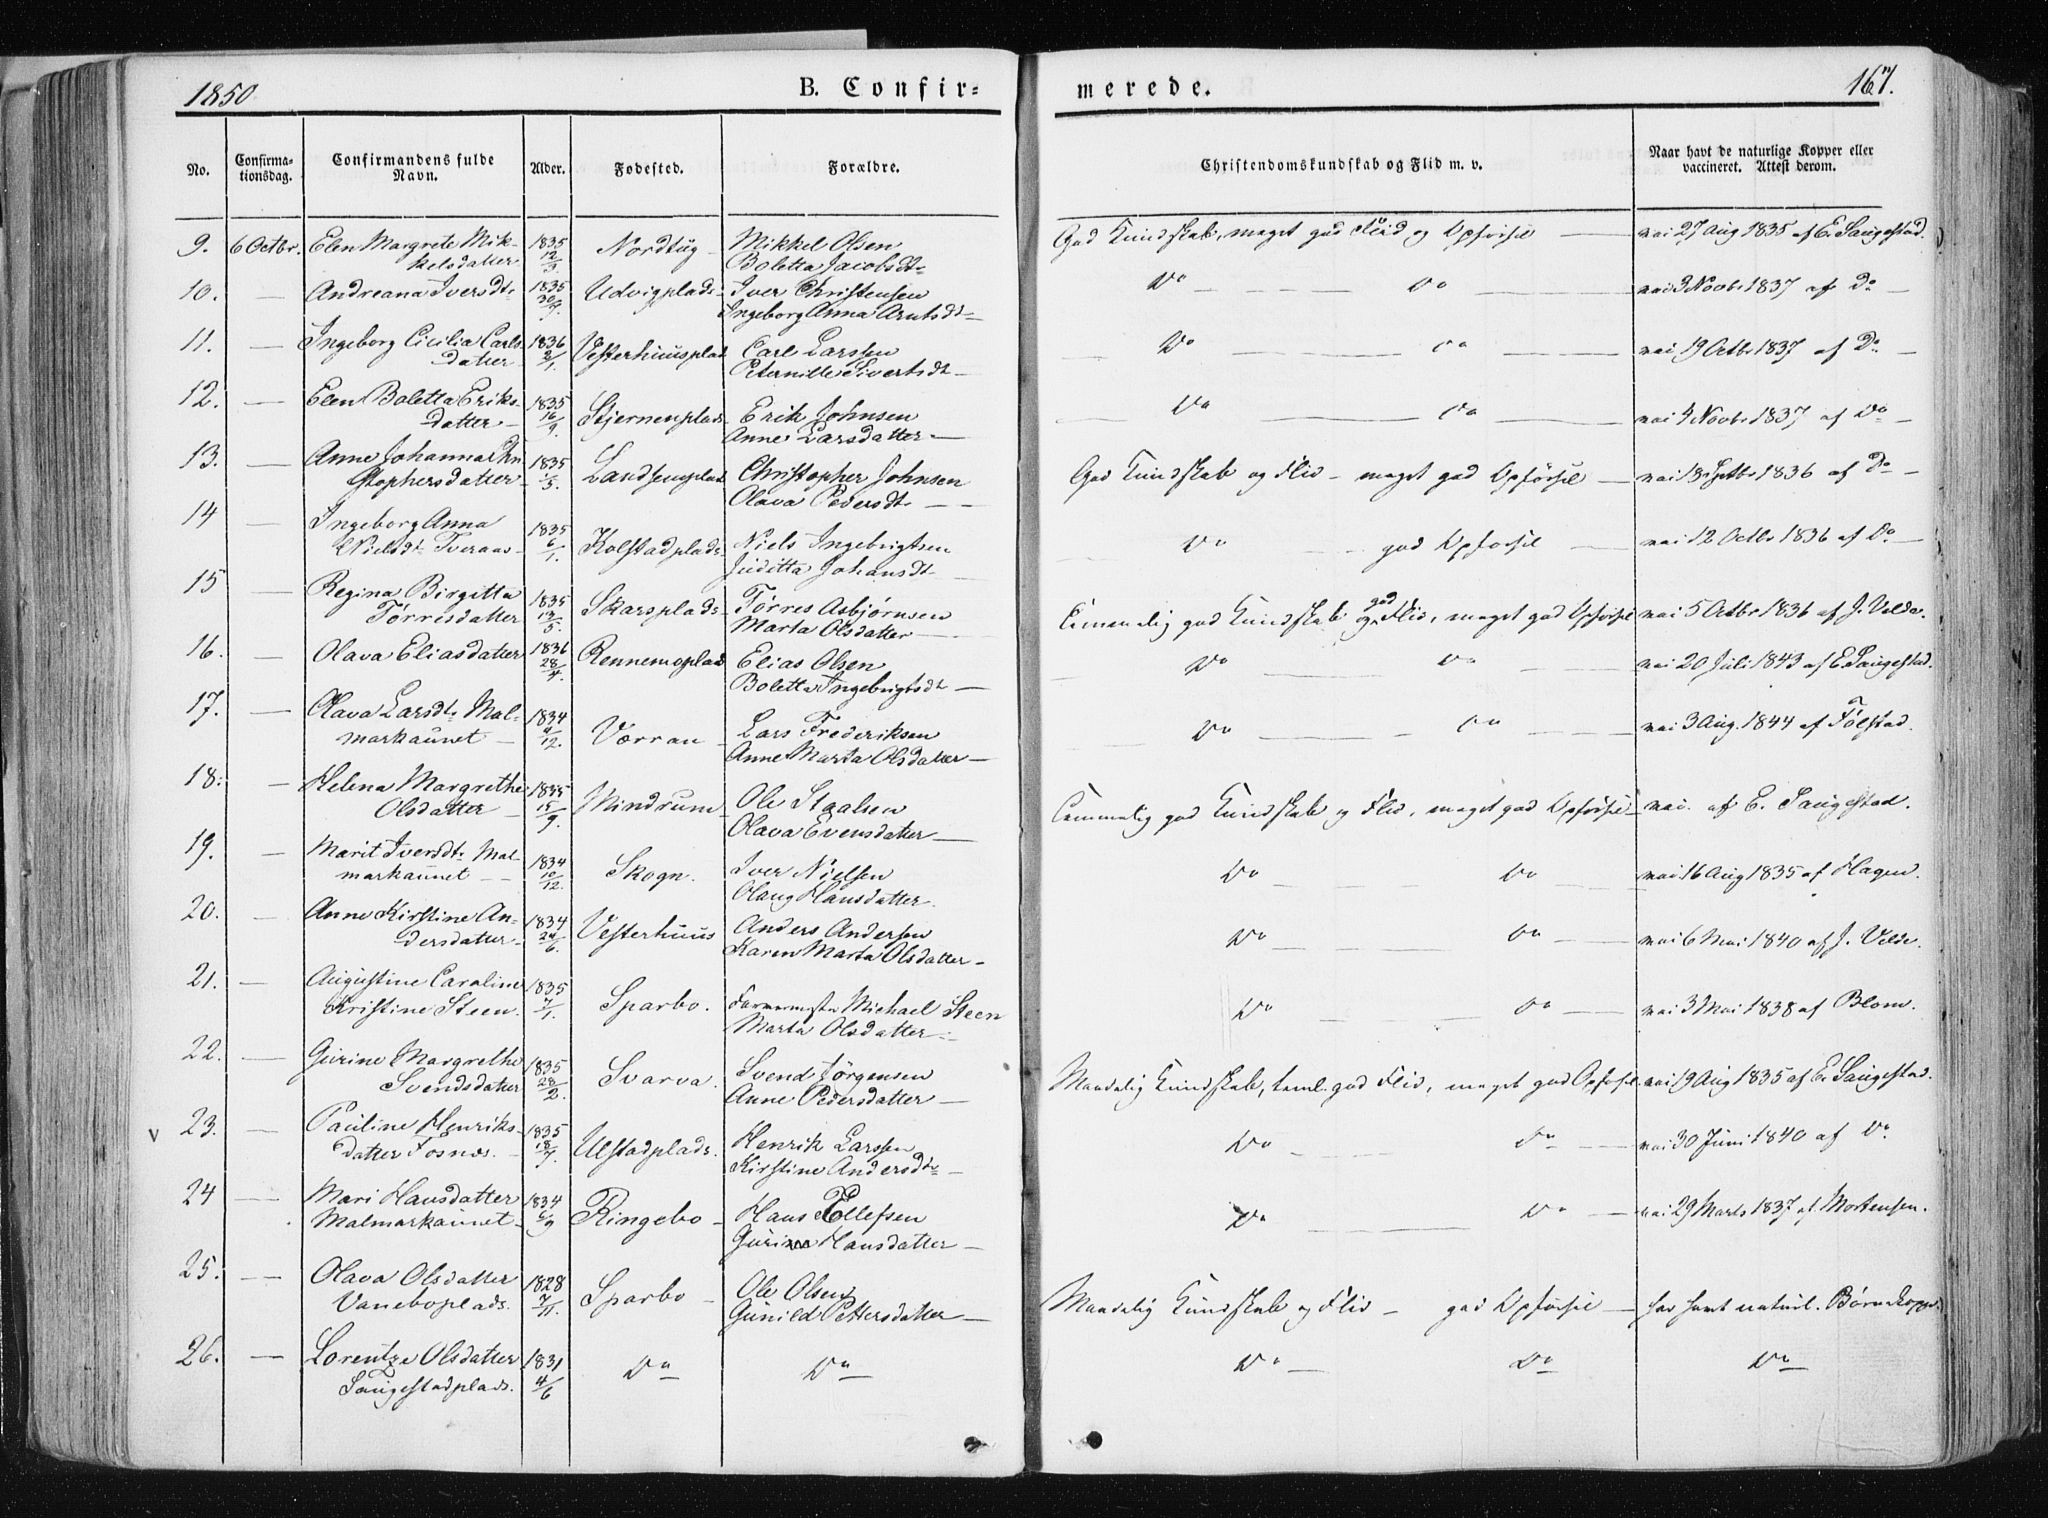 1850
B. Confir-
merede.
167.
No.
Confirma-
tionsdag.
Confirmandens fulde
Navn.
Alder.
Fødested.
Forældre.
Christendomskundskab og Flid m. v.
Naar havt de naturlige Kopper eller
vaccineret. Attest derom.
9. 6 Octbr. Elen Margrete Mik- 1835 Nordtug Mikkel Olsen God Kundskab, meget god Flid og Opførsel vac 27 Aug 1835 af E. Saugestad.
kelsdatter 12/3. Boletta Jacobsdt.
10. — Andreana Iversdt. 1835 Udvigplads Iver Christensen Do Do vac 3 Novbr 1837 af Do
30/9. Ingeborg Anna Arntsdt.
11. — Ingeborg Cicilia Carls- 1836 Vesterhuusplad Carl Larssen Do Do vac 19 Octbr 1837 af Do
datter 2/1. Peternille Sivertsdt.
12. — Elen Boletta Eriks- 1835 Stjernenplads Erik Johnsen Do Do vac 4 Novbr 1837 af Do
datter 16/9. Anne Larsdatter
13. — Anne Johanna Chri 1835 Landsemplad Christopher Johnsen God Kundskab og Flid — meget god Opførsel vac 13 Septbr 1836 af Do
stophersdatter 1/5. Olava Pedersdt.
14 — Ingeborg Anna 1835 Kolstadplads Niels Ingebrigtsen Do god Opførsel vac 12 Octbr 1836 af Do
Nielsdt. Tveraas 6/1. Juditta Johansdt.
15 Regina Birgitta 1835 Skarsplads Tørres Asbjørnsen Temmelig god Kundskab og god Flid, meget god Opførsel vac 5 Octbr 1836 af J. Velde.
Tørrisdatter 13/5. Marta Olsdatter
16. — Olava Eliasdatter 1836 Rennemoplad Elias Olsen Do Do vac 20 Juli 1843 af E. Saugestad.
28/4. Boletta Ingebrigtsdt
17. — Olava Larsdt. Mal- 1834 Værran Lars Frederiksen Do Do vac 3 Aug. 1844 af Følstad.
markaunet 4/12. Anne Marta Olsdatter
18. — Helena Margrethe 1835 Mindrum Ole Staalsen Temmelig god Kundskab og Flid, meget god Opførsel vac. af E. Saugestad.
Olsdatter 15/9. Olava Evensdatter
19. — Marit Iversdt. Mal- 1834 Skogn. Iver Nielsen Do Do vac 16 Aug 1835 af Hagen.
markaunet 10/12. Olaug Hansdatter.
20. — Anne Kirstine An- 1834 Vesterhuus Anders Andersen Do Do vac 6 Mai 1840 af J. Velde.
dersdatter 24/6. Karen Marta Olsdatter
21. — Augustine Caroline 1835 Sparbo. Michael Steen Do Do vac 31 Mai 1838 af Blom.
Kristine Steen. 7/1. Marta Olsdatter
22. — Gurine Margrethe 1835 Svarva. Svend Jörgensen Maadelig Kundskab, teml. god Flid, meget god Opførsel. vac 19 Aug 1835 af E. Saugestad.
Svendsdatter 28/2. Anne Pedersdatter
v 23. — Pauline Henriks- 1835 Ulstadplads. Henrik Larssen Do Do vac 30 Juni 1840 af Do
datter Fosnæs. 18/7. Kirstine Andersdtr
24 — Mari Hansdatter 1834 Ringebo Hans Ellefsen Do Do vac 29 Marts 1837 af Mortensen.
Malmarkaunet 6/9 Guri Hansdatter
25. — Olava Olsdatter 1828 Sparbo Ole Olsen Maadelig Kundskab og Flid — god Opførsel — har havt naturl. Børnekopper.
Vaneboplads. 7/11. Gunild Pettersdatter
26. — Lorentze Olsdatter 1831 Do Do Do Do Do
Saugestadplads. 4/6